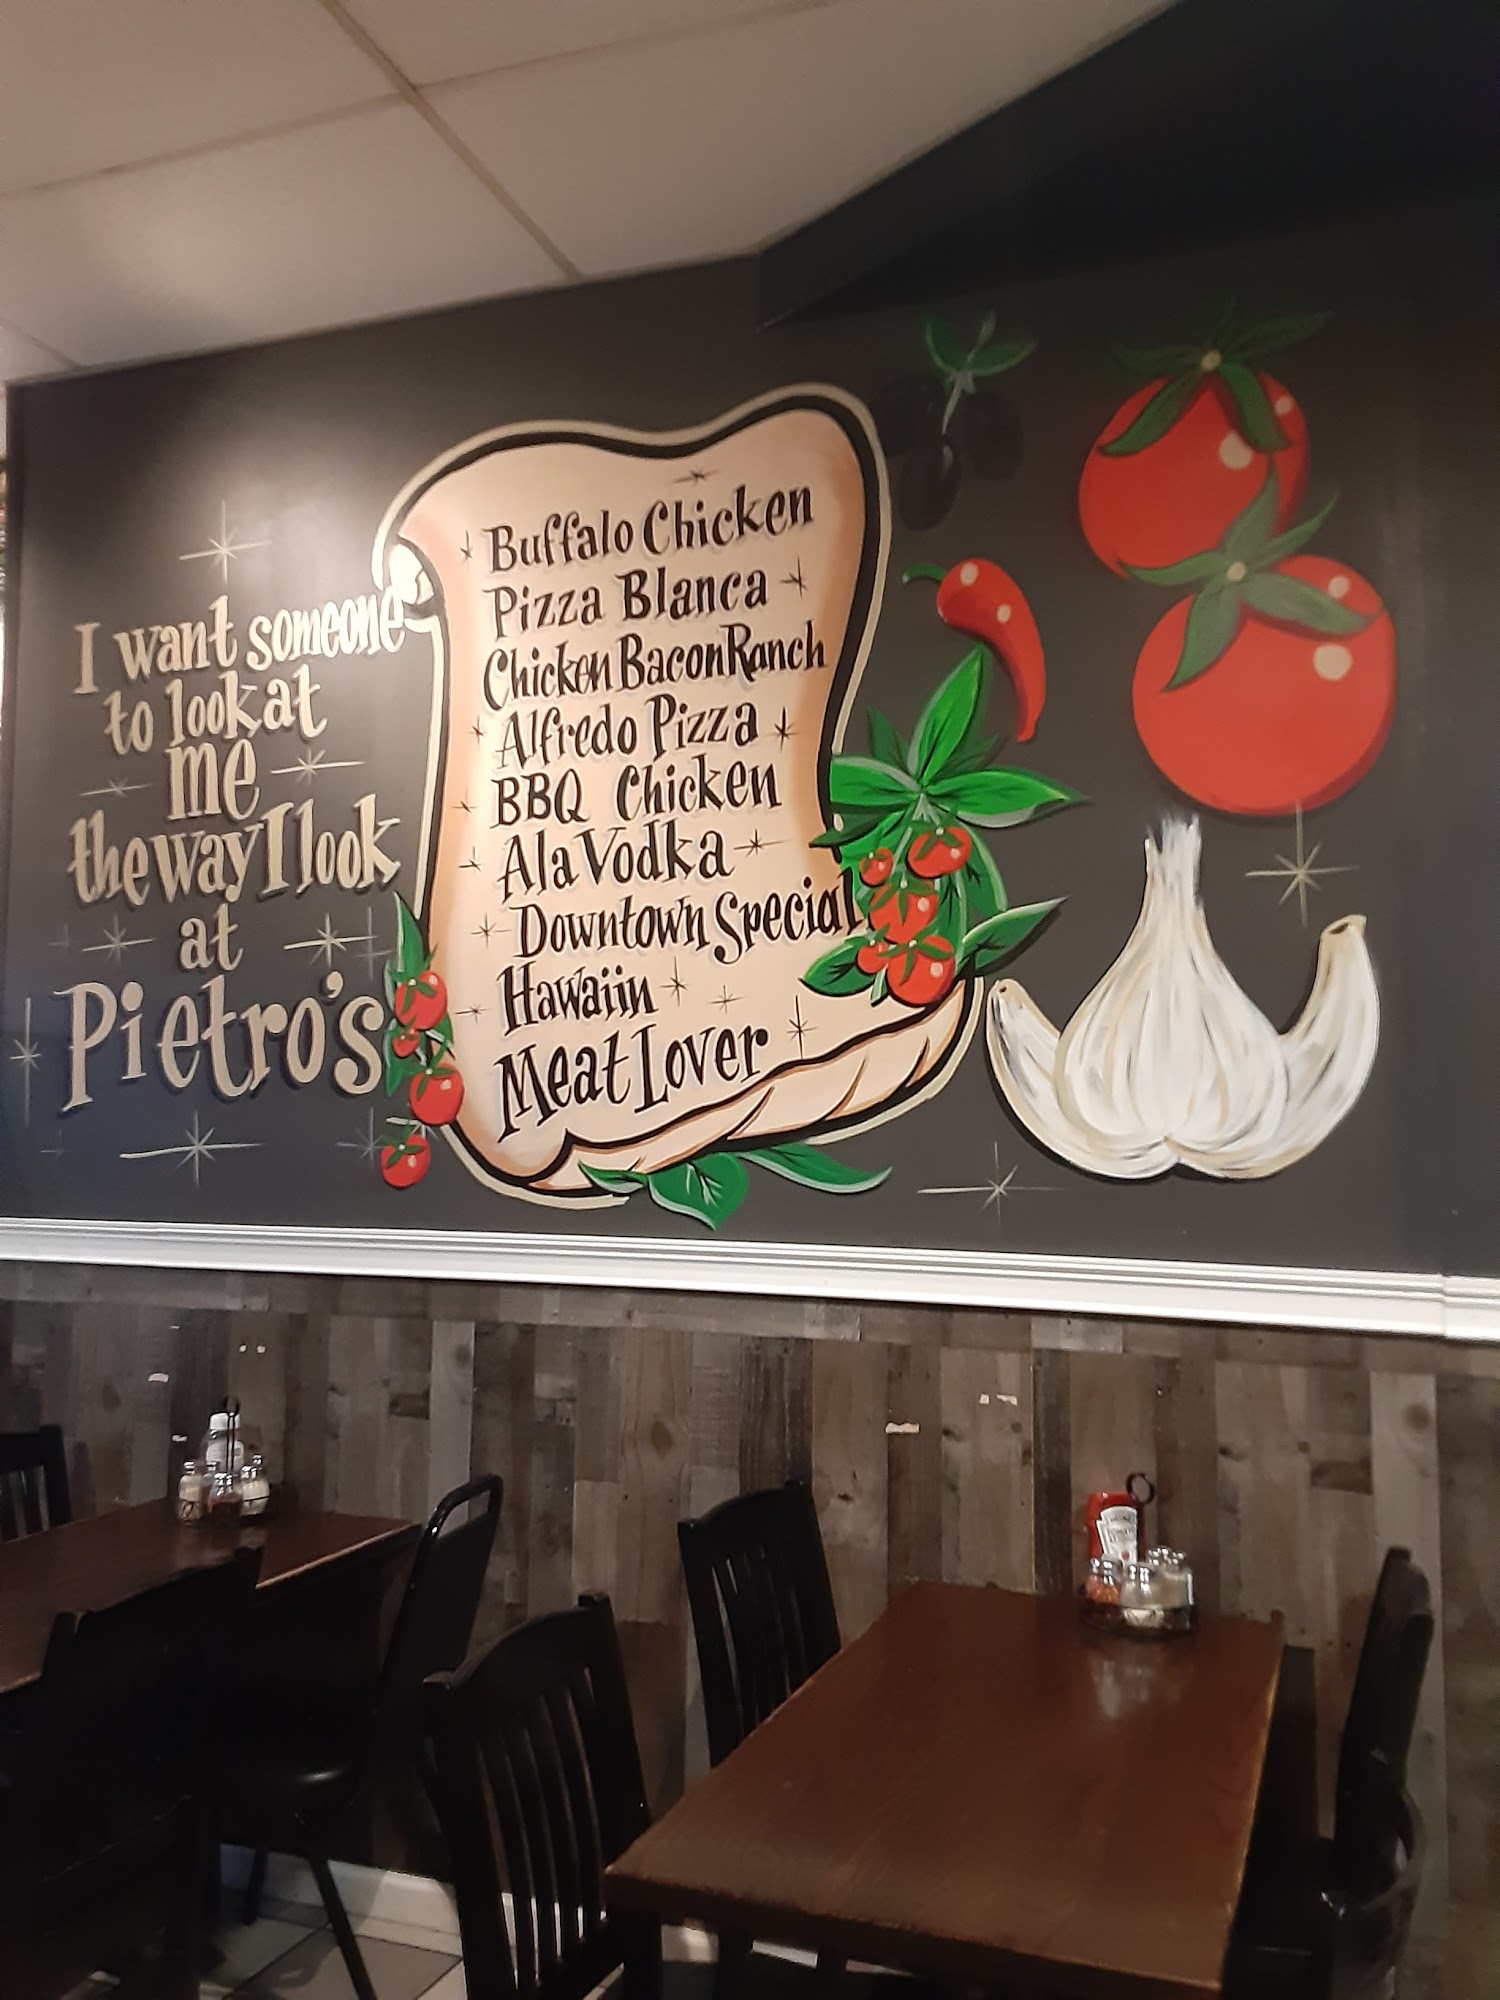 I want someone
to look at
me
the way I look
at
Pietro's
Buffalo Chicken
Pizza Blanca
Chicken Bacon Ranch
Alfredo Pizza
BBQ Chicken
Ala Vodka
Downtown Special
Hawaiin
Meat Lover
HEINZ